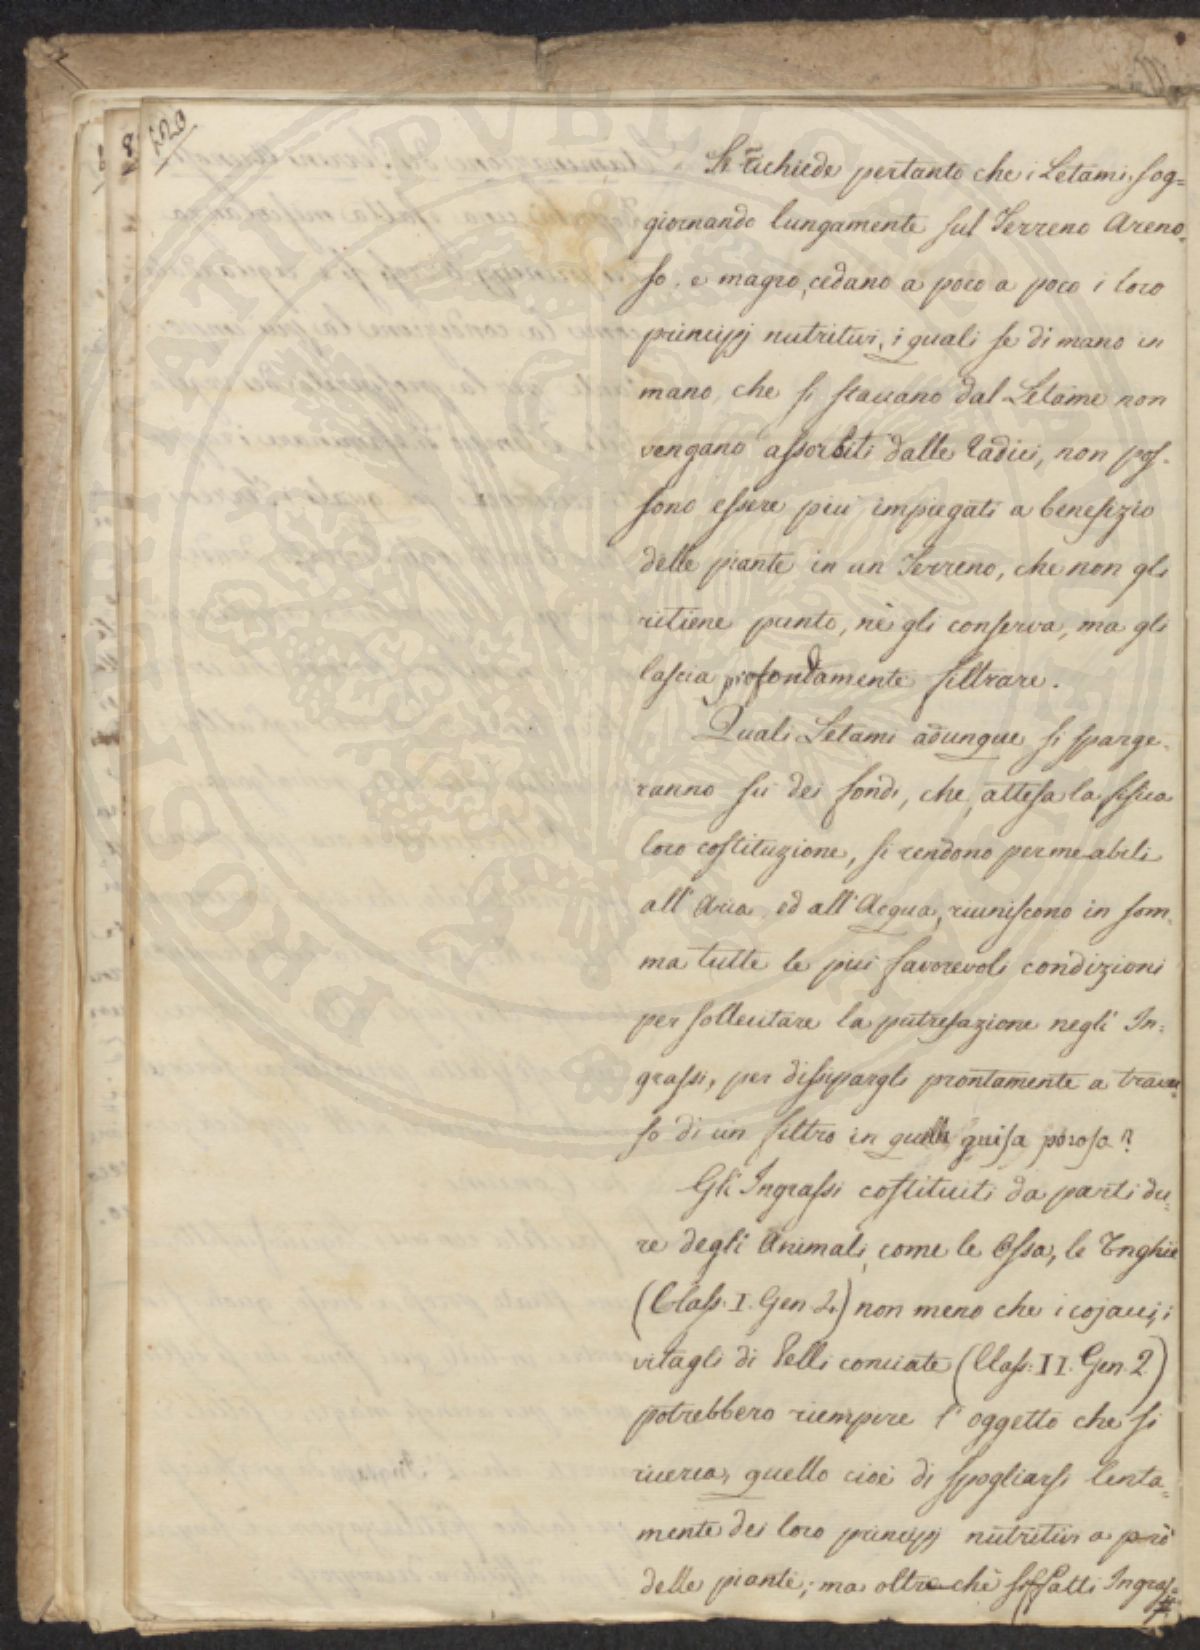 Si richiede pertanto che i Letami, sog=
giornando lungamente sul Terreno Areno=
so, e magro, cedano a poco a poco i loro
principj nutritivi, i quali se di mano in
mano, che si staccano dal Letame non
vengano assorbiti dalle Radici, non pos=
sono essere piu impiegati a benefizio
delle piante in un Terreno, che non gli
ritiene punto, nè gli conserva, ma gli
lascia profondamente filtrare.
Quali Letami adunque si sparge=
ranno su dei fondi, che, attesa la fisica
loro costituzione, si rendono permeabili
all'Aria, ed all'Acqua, riuniscono in som=
ma tutte le piu favorevoli condizioni
per sollecitare la putrefazione negli In=
grassi, per dissipargli prontamente a traver
so di un filtro in quella guisa porosa?
Gli Ingrassi costituiti da parti du=
re degli Animali, come le Ossa, le Unghie
(Class. I. Gen. 2.) non meno che i cojacci, i
ritagli di Pelli conciate (Class: II. Gen. 2)
potrebbero riempire l'oggetto che si
ricerca, quello cioè di spogliarsi lenta=
mente dei loro principj nutritivi a prò
delle piante; ma oltre chè siffatti Ingras=